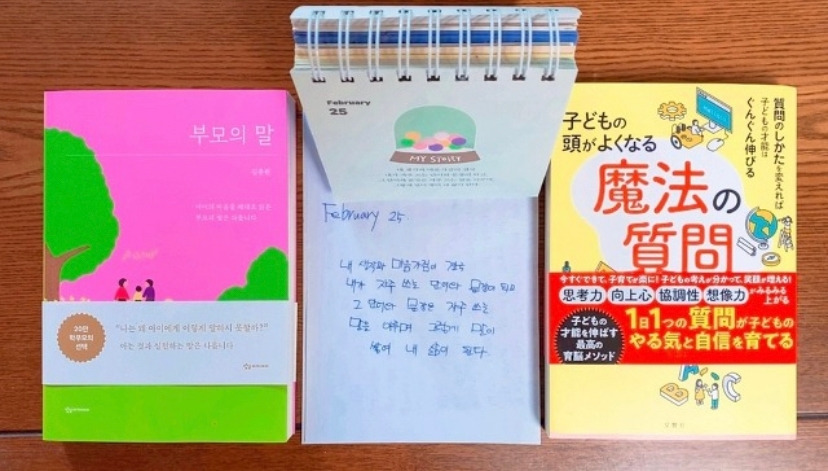 부모의 말
김종원
"나는 왜 아이에게 이렇게 말하지 못할까?"
아는 것과 실천하는 말은 다릅니다.
30만
학부모의
선택
February
25
MY StoRY
February 25
내 생각과 마음가짐이 결국
내가 자주 쓰는 단어와 문장이 되고
그 단어와 문장은 자주 쓰는
말을 이루며 그렇게 말이
쌓여 내 삶이 된다.
質問のしかたを変えれば
子どもの才能は
ぐんぐん伸びる
子どもの
頭がよくなる
魔法の
質問
今すぐできて、子育てが楽に!子どもの考えが分かって、笑顔が増える!
思考力 向上心 協調性 想像力 がみるみる
上がる
子どもの
才能を伸ばす
最高の
育脳メソッド
1日1つの質問が子どもの
やる気と自信を育てる
B
C